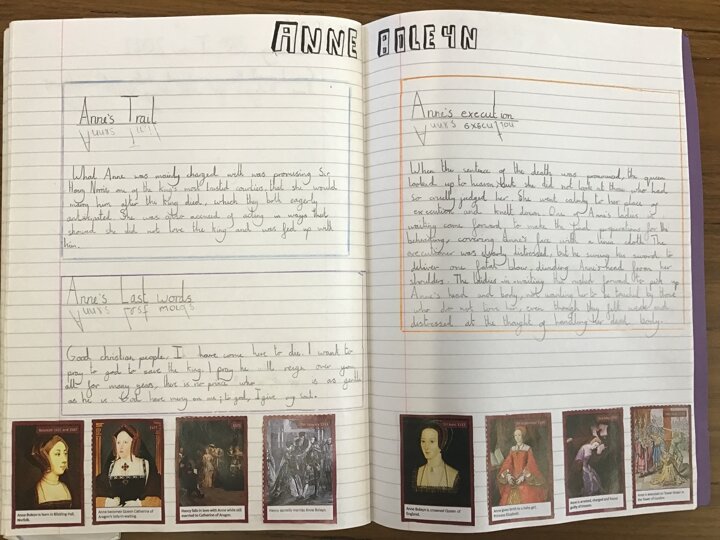 ANNE BOLEYN
Anne's Trail
What Anne was mainly charged with was promising Sir
Henry Norris one of the king's most trusted courties, that she would
marry him after the king died, which they both eagerly
anticipated. She was also accused of acting in ways that
showed she did not love the king and was feed up with
him.
Anne's Last words
Good christian people, I have come here to die. I want to
pray to god to save the king. I pray he reign over you
all for many years, there is no prince who is as gentle
as he is. God have mercy on me; to god, I give my soul.
Anne Boleyn is born in Blickling Hall,
Norfolk.
Anne becomes Queen Catherine of
Aragon's lady-in-waiting.
Henry falls in love with Anne while still
married to Catherine of Aragon.
Henry secretly marries Anne Boleyn.
Anne's execution
When the sentence of the death was pronounced, the queen
looked up to heaven but she did not look at those who had
so cruelly judged her. She went calmly to her place of
execution and knelt down. One of Anna's ladies in
waiting came forward, to make the last preparations for the
beheading, covering Anne's face with a linin cloth. The
executioner was clearly distressed, but he swung his sword to
deliver one fatal blow, dividing Anne's head from her
shoulders. The ladies in waiting then rushed forward to pick up
Anne's head and body, not wanting her to be touched by those
who do not love her, even though they felt weak and
distressed at the thought of handling her dead body.
Anne Boleyn is crowned Queen of
England.
Anne gives birth to a baby girl,
Princess Elizabeth.
Anne is arrested, charged and found
guilty of treason.
Anne is executed on Tower Green in
the Tower of London.